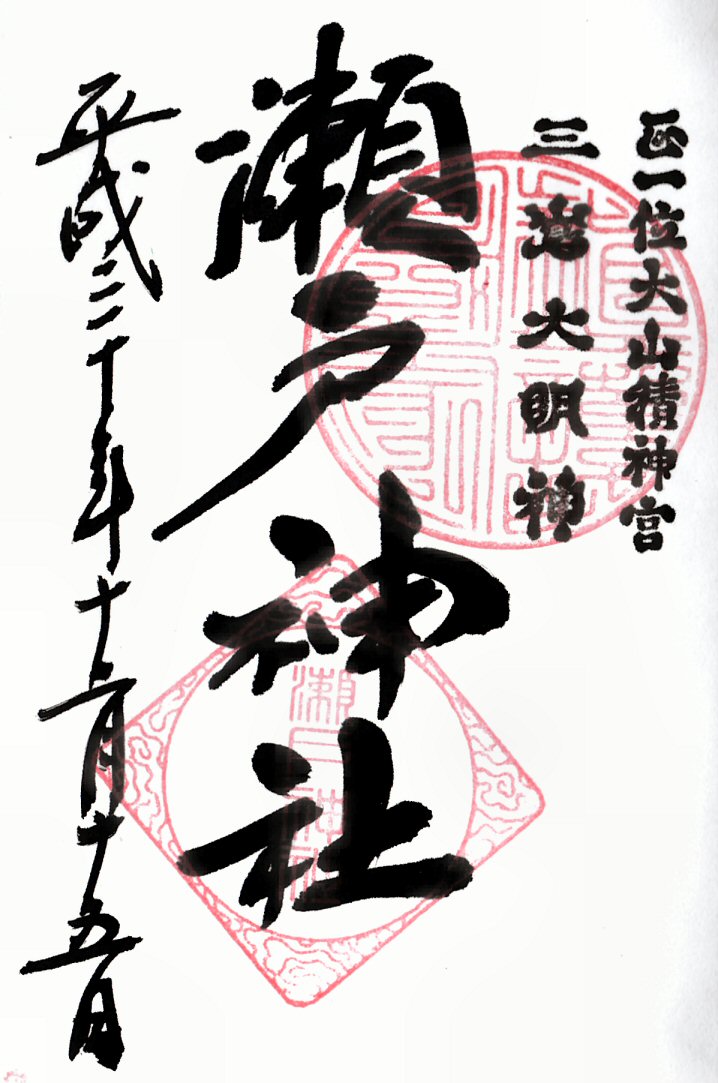 正一位大山積神宮
三嶌大明神
瀬戸神社
平成三十年十二月十五日
瀬戸神社